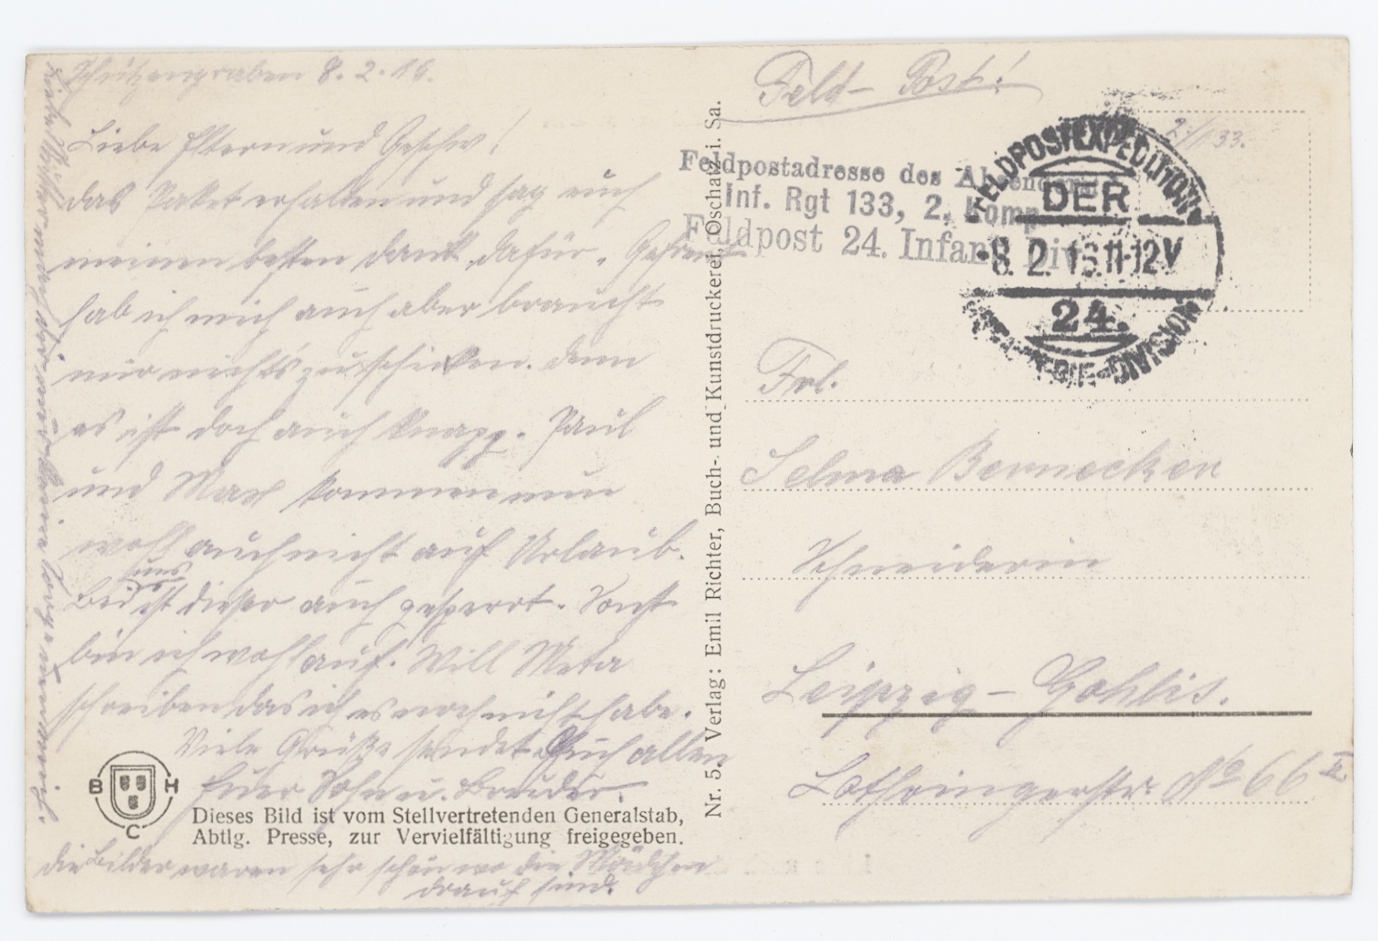 Schützengraben 8.2.16.
Liebe Eltern und Geschw!
das Paket erhalten und sag euch
meinen besten Dank dafür. Gefreut
hab ich mich auch aber braucht
mir nichts zu schicken. denn
es ist doch auch knapp. Paul
und Max kommen nun
wohl auch nicht auf Urlaub.
Bei uns ist dieser auch gesperrt. Sonst
bin ich wohlauf. Will Meta
schreiben das ich es noch nicht habe.
Viele Grüße sendet Euch allen
Euer Sohn u. Bruder.
die Bilder waren sehr schön wo die Mädchen
drauf sind.
Liebe Mutter mach dir nur keine Sorge
BHC
Dieses Bild ist vom Stellvertretenden Generalstab,
Abtlg. Presse, zur Vervielfältigung freigegeben.
Nr. 5. Verlag: Emil Richter, Buch- und Kunstdruckerei, Oschatz i. Sa.
Feld-Post!
2/133.
Feldpostadresse des
Inf. Rgt 133, 2. Komp
Feldpost 24. Infan Div
FELDPOSTEXPEDITION
DER
8.2.16.11-12V
24.
DIVISION
Frl.
Selma Bernecker
Schneiderin
Leipzig-Gohlis.
Lothringerstr. No 66 II